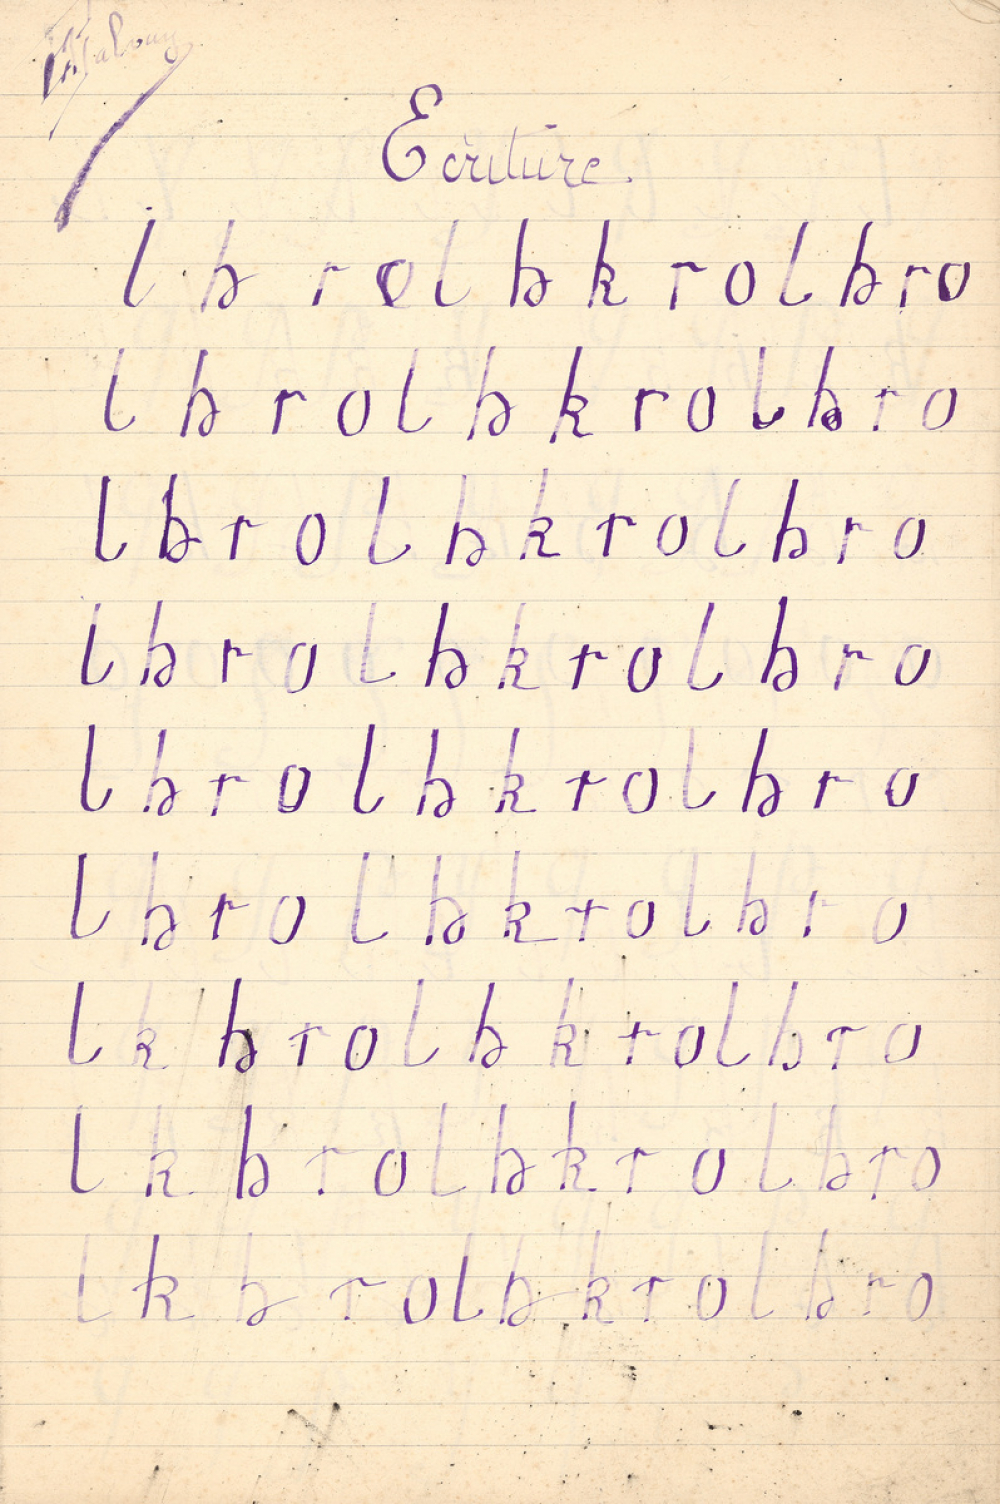 Ecriture.
l b r o l b k r o l b r o
l b r o l b k r o l b r o
l b r o l b k r o l b r o
l b r o l b k r o l b r o
l b r o l b k r o l b r o
l b r o l b k r o l b r o
l k b r o l b k r o l b r o
l k b r o l b k r o l b r o
l k b r o l b k r o l b r o